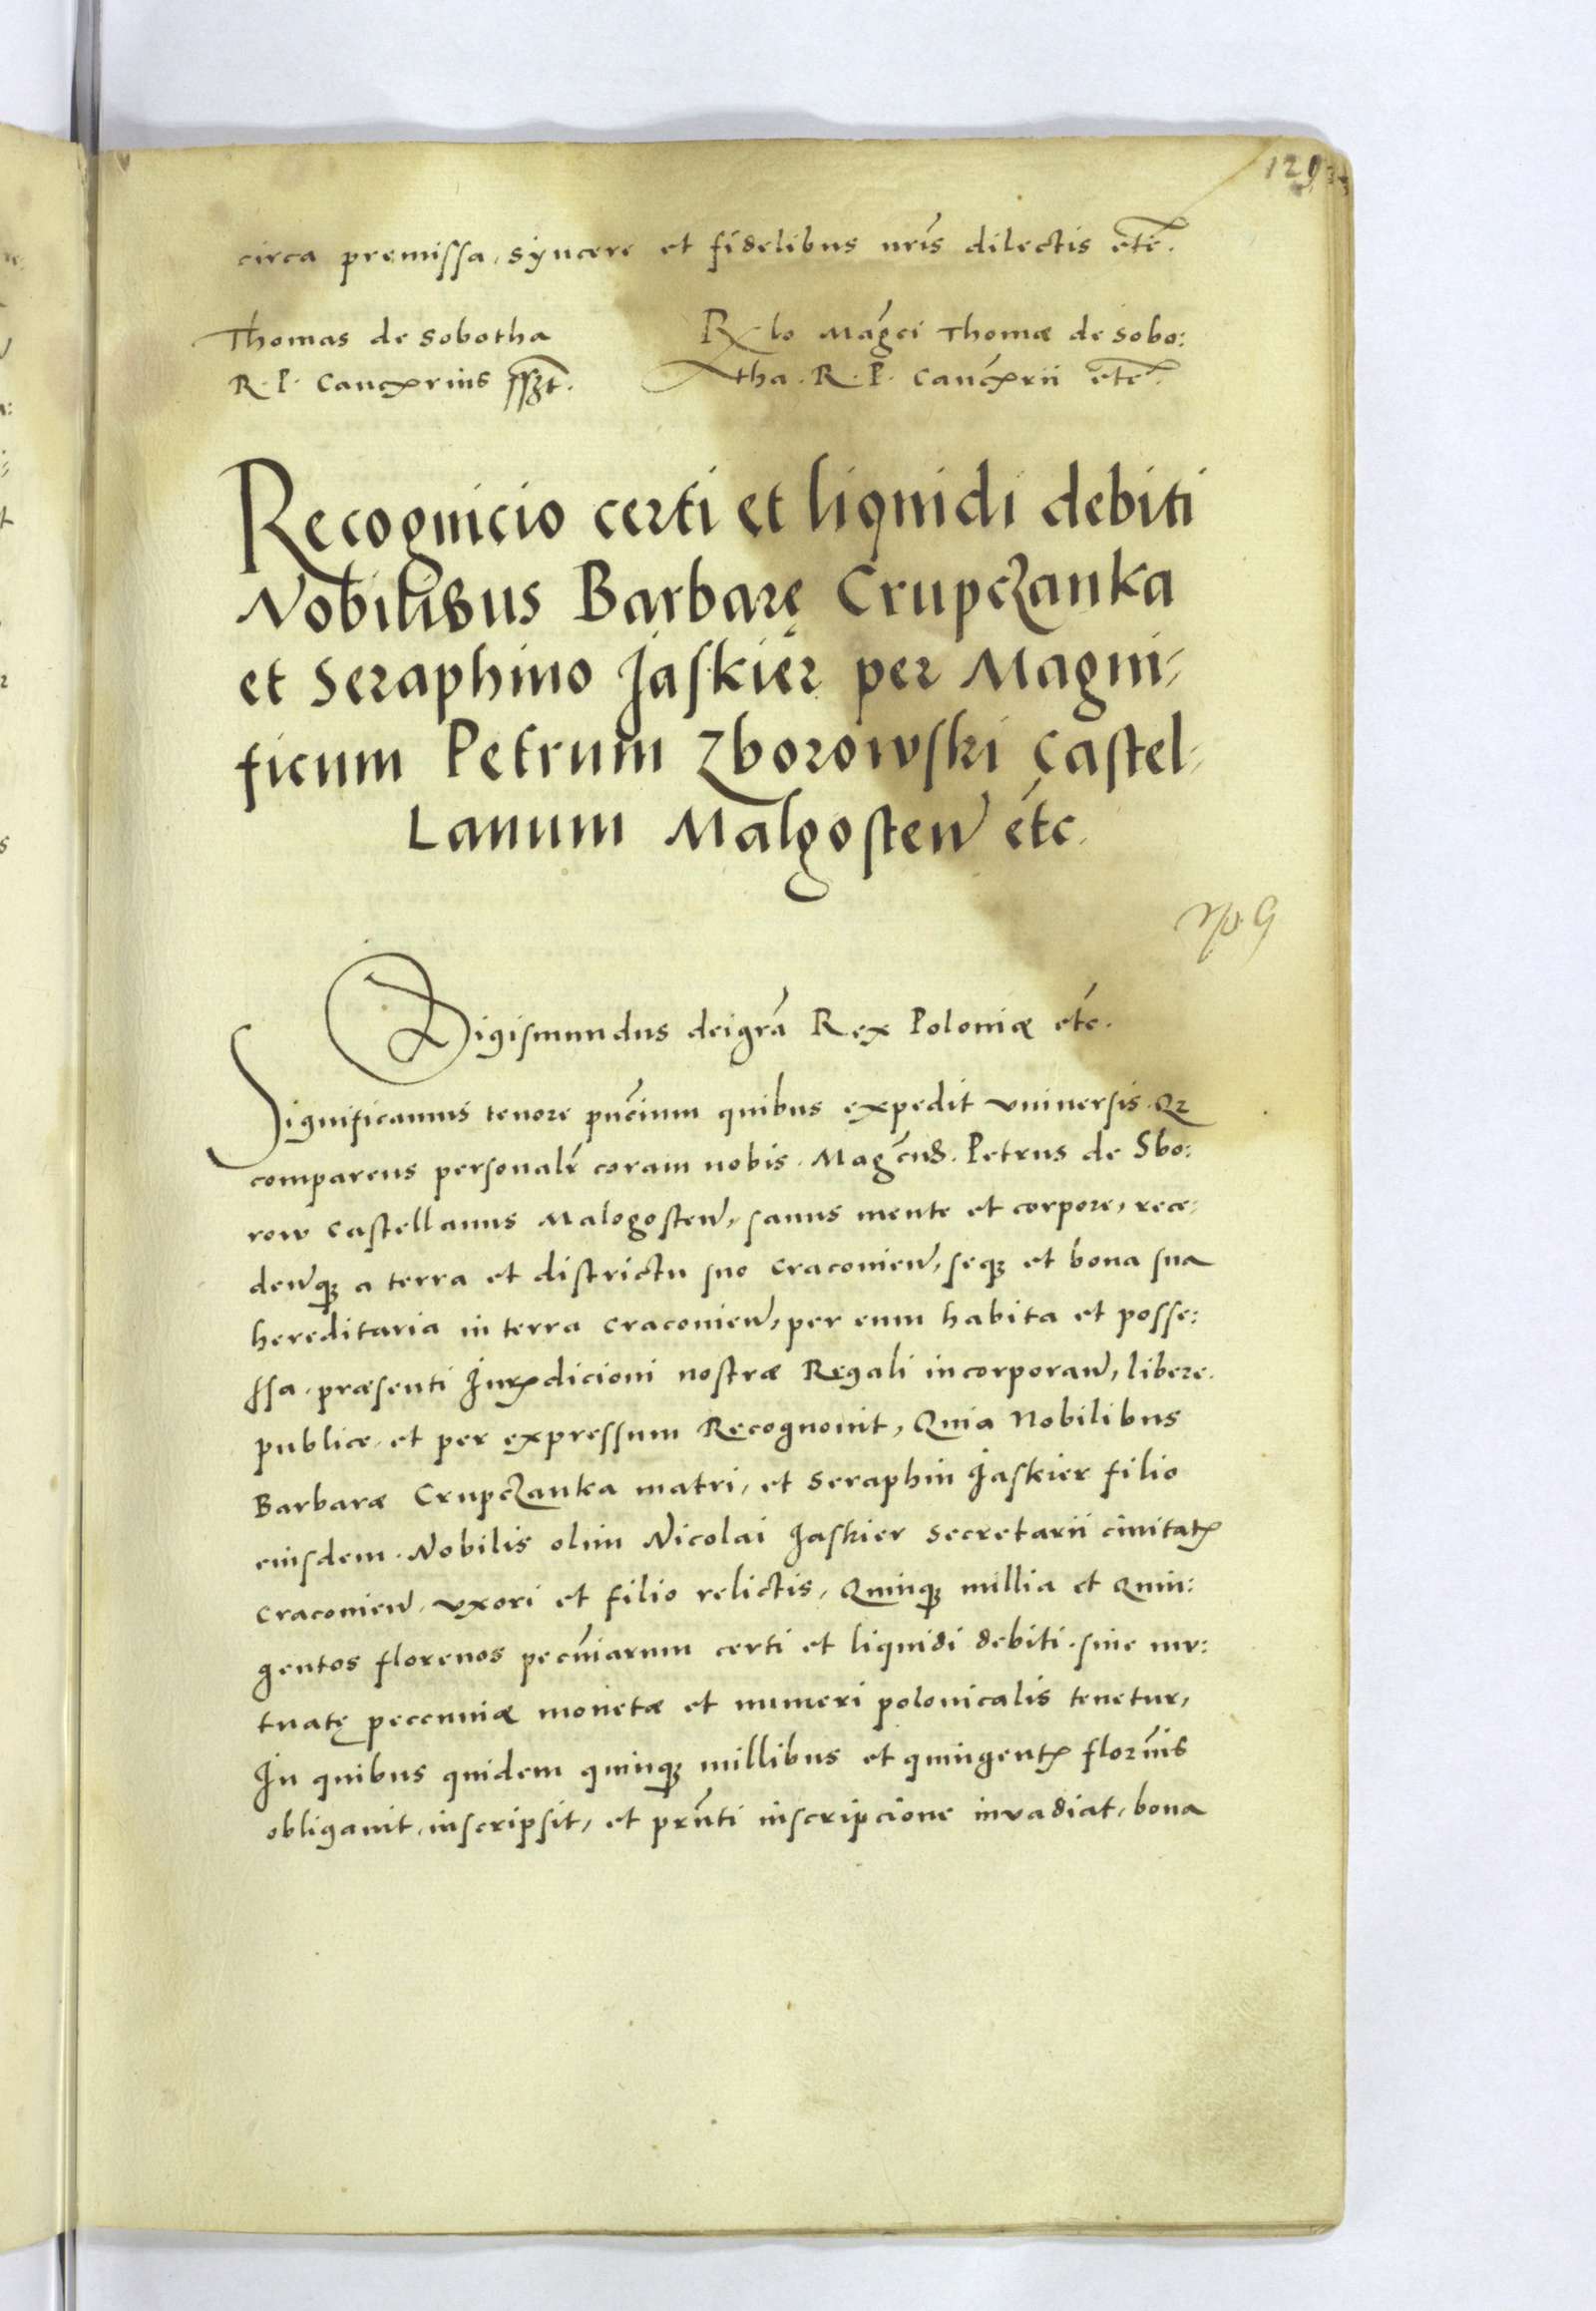 129
circa premissa, syncere et fidelibus nr̃is dilectis etc̃.
Thomas de Sobotha
R. P. Cancꝝrius sszt.
Rx̃lo Mag̃ci Thomæ de Sobo:
tha. R. P. Canc̃ꝝrii etc̃.
Recognicio certi et liquidi debiti
Nobilibus Barbarę Crupczanka
et Seraphino Jaskier per Magni-
ficum Petrum Zborowski Castel-
Lanum Malgosteñ etc.
Sigismundus dei gr̃a Rex Poloniæ etc.
Significamus tenore pñcium quibus expedit vniuersis. Qz
comparens personalr̃ coram nobis. Mag̃cus. Petrus de Sbo:
row Castellanus Malogosteñ, sanus mente et corpore, rece:
deñqꝫ a terra et districtu suo Craconieñ, seqꝫ et bona sua
hereditaria in terra Craconieñ, per eum habita et posse:
ssa, præsenti Jurꝭdicioni nostræ Regali incorporañ, libere.
publice, et per expressum Recognouit, Quia Nobilibus
Barbaræ Crupczanka matri, et Seraphin Jaskier filio
eiusdem. Nobilis olim Nicolai Jaskier Secretarii ciuitatꝭ
Craconieñ, vxori et filio relictis, Quinqꝫ millia et Quin:
gentos florenos pecũiarum certi et liquidi debiti. siue mv:
tuatę peccuniæ monetæ et numeri polonicalis tenetur,
In quibus quidem quinqꝫ millibus et quingentꝭ florẽis
obligauit, inscripsit, et prñti inscripcione invadiat, bona